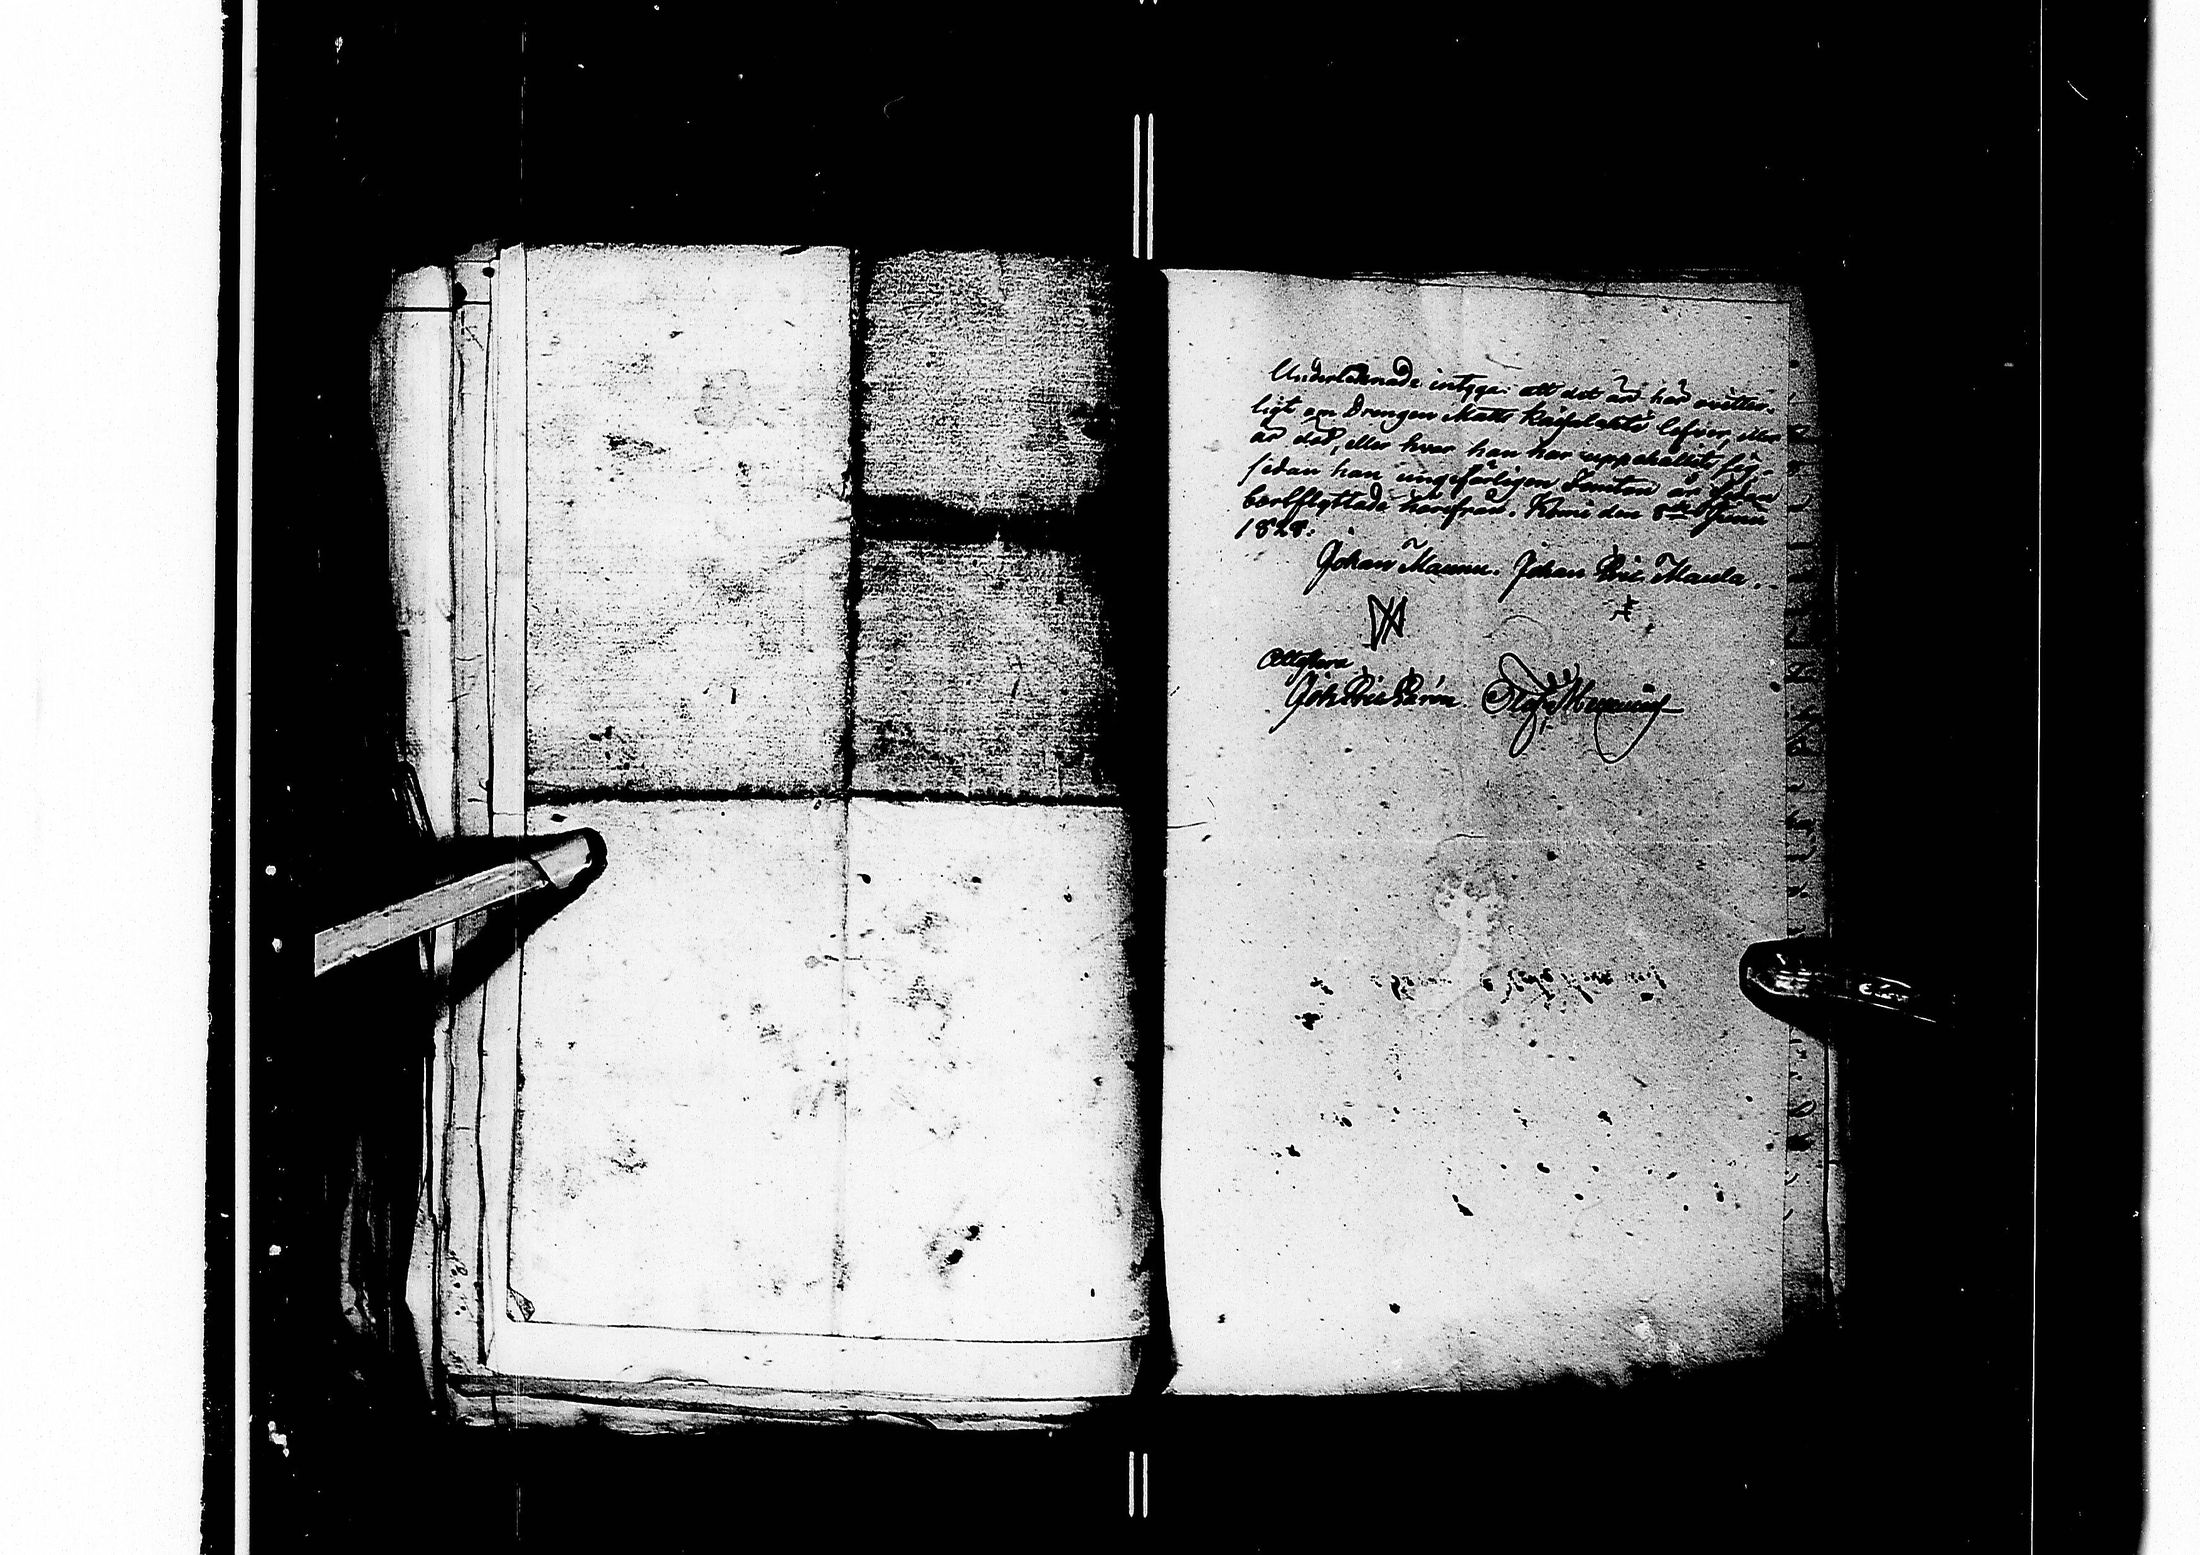 Undertecknade intyga: att det är här ovetter-
ligt om Drengen Matts Kaisalahti lefver, eller
är död, eller hvar han har uppehållit sig,
sedan han ungefärligen Femton år sedan
bortflyttade härifrån. Kemi den 8de Junii
1828.
Johan Maunu. Johan Eric Maula.
Attestera
Joh: Eric